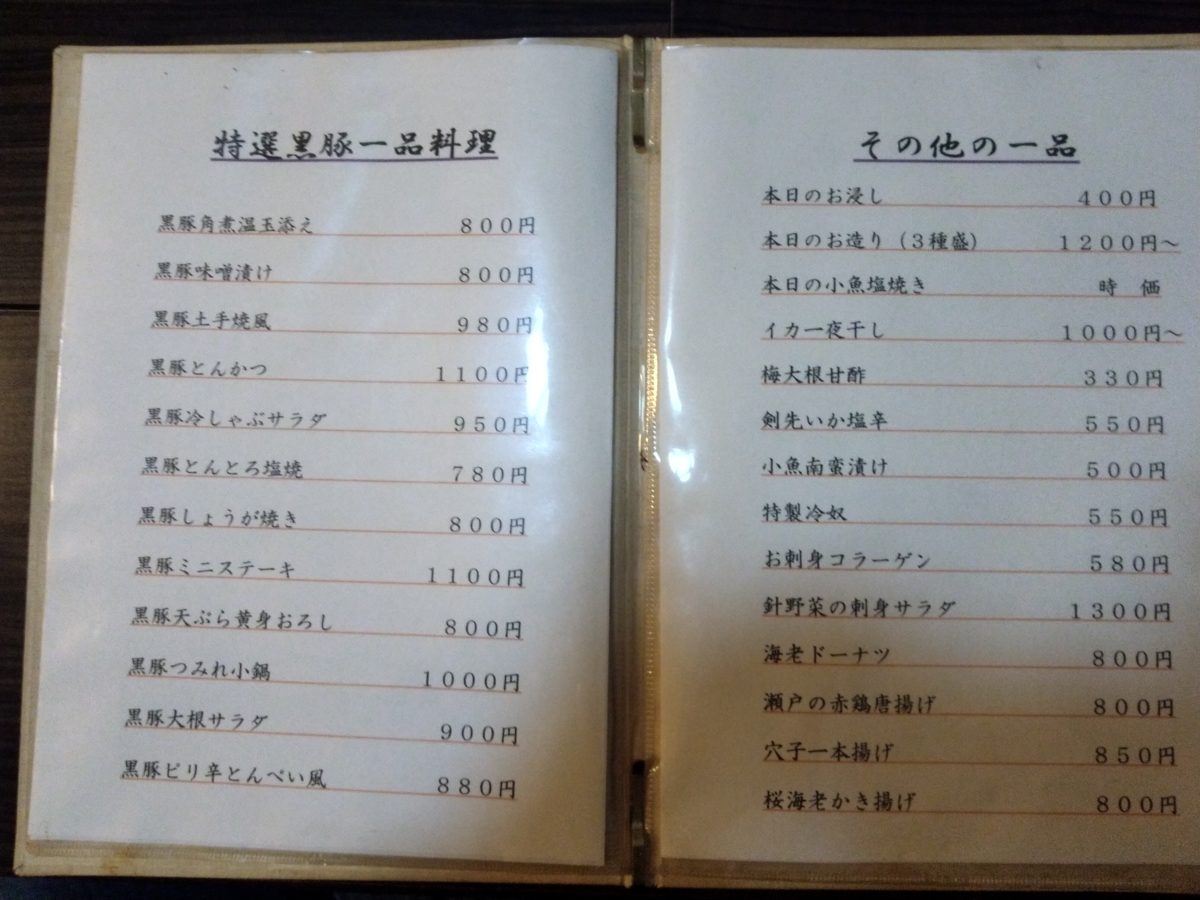 特選黒豚一品料理
黒豚角煮温玉添え ８００円
黒豚味噌漬け ８００円
黒豚土手焼風 ９８０円
黒豚とんかつ １１００円
黒豚冷しゃぶサラダ ９５０円
黒豚とんとろ塩焼 ７８０円
黒豚しょうが焼き ８００円
黒豚ミニステーキ １１００円
黒豚天ぷら黄身おろし ８００円
黒豚つみれ小鍋 １０００円
黒豚大根サラダ ９００円
黒豚ピリ辛とんぺい風 ８８０円
その他の一品
本日のお浸し ４００円
本日のお造り（３種盛） １２００円～
本日の小魚塩焼き 時　価
イカ一夜干し １０００円～
梅大根甘酢 ３３０円
剣先いか塩辛 ５５０円
小魚南蛮漬け ５００円
特製冷奴 ５５０円
お刺身コラーゲン ５８０円
針野菜の刺身サラダ １３００円
海老ドーナツ ８００円
瀬戸の赤鶏唐揚げ ８００円
穴子一本揚げ ８５０円
桜海老かき揚げ ８００円